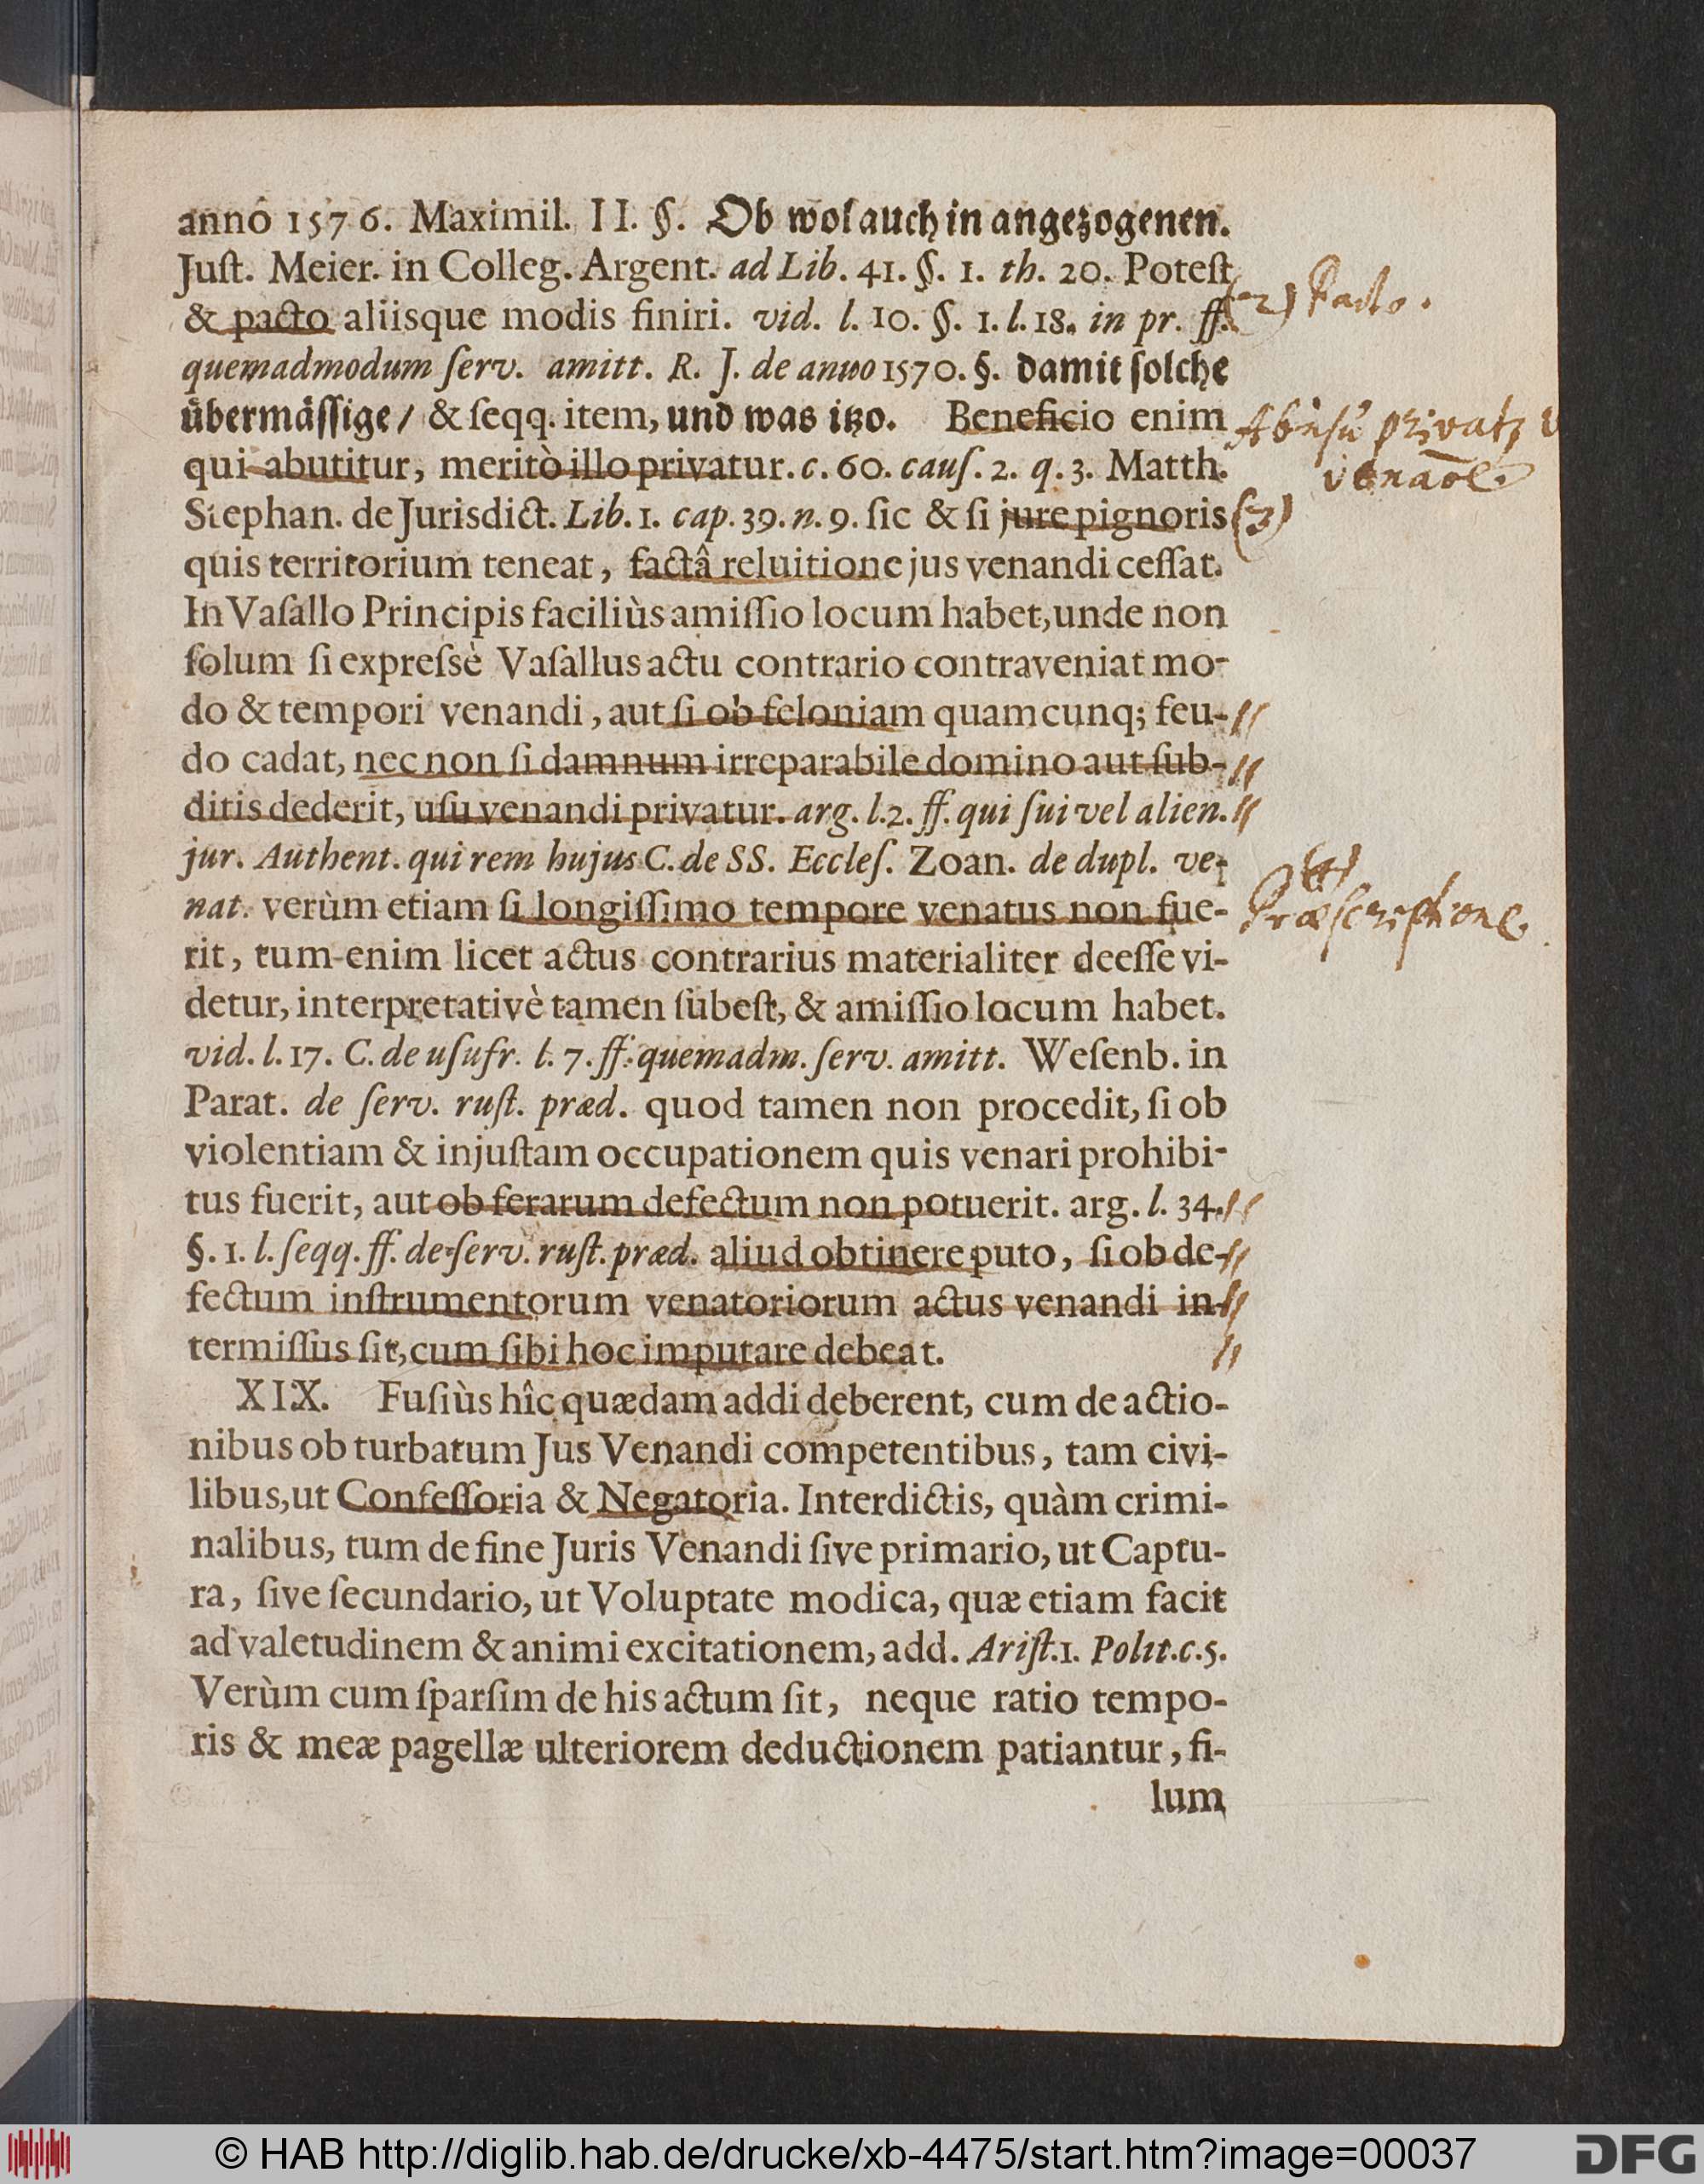 anno 1576. Maximil. II. §. Ob wol auch in angezogenen.
Juſt. Meier. in Colleg. Argent. ad Lib. 41. §. 1. th. 20. Poteſt
& pacto aliisque modis finiri. vid. l. 10. §. 1. l. 18. in pr. ff.
(2) Pacto.
quemadmodum ſerv. amitt. R. J. de anno 1570. §. damit ſolche
übermäſſige / & ſeqq. item, und was itzo. Beneficio enim
Abusu privatʒ
qui abutitur, meritò illo privatur. c. 60. cauſ. 2. q. 3. Matth.
venaōe.
Stephan. de Jurisdict. Lib. 1. cap. 39. n. 9. ſic & ſi jure pignoris
(3)
quis territorium teneat, factâ reluitione jus venandi ceſſat.
In Vaſallo Principis faciliùs amiſſio locum habet, unde non
ſolum ſi expreſsè Vaſallus actu contrario contraveniat mo-
do & tempori venandi, aut ſi ob feloniam quamcunq; feu-
do cadat, nec non ſi damnum irreparabile domino aut ſub-
ditis dederit, uſu venandi privatur. arg. l. 2. ff. qui ſui vel alien.
jur. Authent. qui rem hujus C. de SS. Eccleſ. Zoan. de dupl. ve-
(4)
nat. verùm etiam ſi longiſſimo tempore venatus non fue-
Præſcriptione.
rit, tum enim licet actus contrarius materialiter deeſſe vi-
detur, interpretativè tamen ſubeſt, & amiſſio locum habet.
vid. l. 17. C. de uſufr. l. 7. ff. quemadm. ſerv. amitt. Weſenb. in
Parat. de ſerv. ruſt. præd. quod tamen non procedit, ſi ob
violentiam & injuſtam occupationem quis venari prohibi-
tus fuerit, aut ob ferarum defectum non potuerit. arg. l. 34.
§. 1. l. ſeqq. ff. de ſerv. ruſt. præd. aliud obtinere puto, ſi ob de-
fectum inſtrumentorum venatoriorum actus venandi in-
termiſſus ſit, cum ſibi hoc imputare debeat.
XIX. Fuſiùs hîc quædam addi deberent, cum de actio-
nibus ob turbatum Jus Venandi competentibus, tam civi-
libus, ut Confeſſoria & Negatoria. Interdictis, quàm crimi-
nalibus, tum de fine Juris Venandi ſive primario, ut Captu-
ra, ſive ſecundario, ut Voluptate modica, quæ etiam facit
ad valetudinem & animi excitationem, add. Ariſt. 1. Polit. c. 5.
Verùm cum ſparſim de his actum ſit, neque ratio tempo-
ris & meæ pagellæ ulteriorem deductionem patiantur, fi-
lum
© HAB http://diglib.hab.de/drucke/xb-4475/start.htm?image=00037
DFG